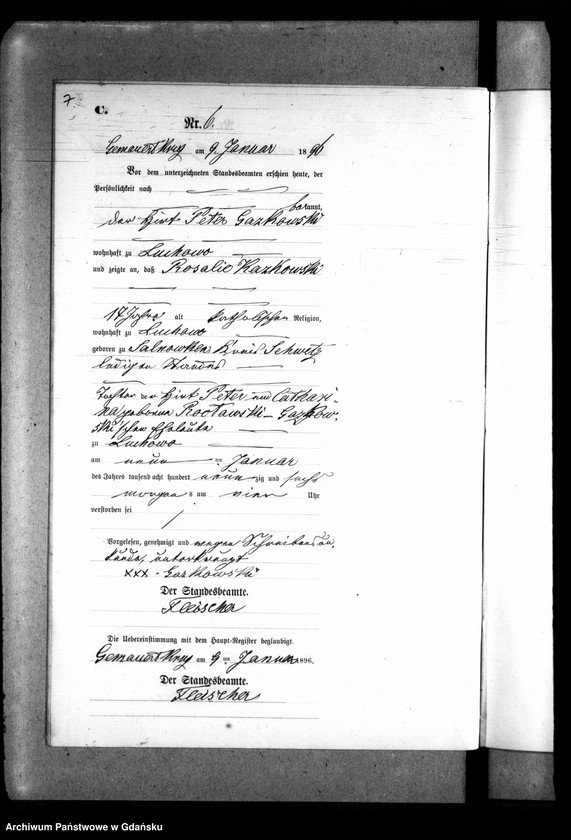 7.
C.
Nr. 6.
Gemauert Krug am 9. Januar 1896
Vor dem unterzeichneten Standesbeamten erschien heute, der
Persönlichkeit nach
bekannt,
der Hirt Peter Gazkowski
wohnhaft zu Luchowo
und zeigte an, daß Rosalie Kazkowski
17 Jahre alt katholischer Religion,
wohnhaft zu Luchowo
geboren zu Kreis Schwetz
ledigen Standes
Tochter der Hirt Peter und Cathari-
na geborene Roclawski - Gazkow-
ski'schen Eheleute
zu Luchowo
am neun ten Januar
des Jahres tausend acht hundert neun zig und sechs
morgens um vier Uhr
verstorben sei
Vorgelesen, genehmigt und wegen Schreibensun-
kunde, unterkreuzt
xxx - Gazkowski
Der Standesbeamte.
Fleischer
Die Uebereinstimmung mit dem Haupt-Register beglaubigt.
Gemauert Krug am 9 ten Januar 1896.
Der Standesbeamte.
Fleischer
Archiwum Państwowe w Gdańsku